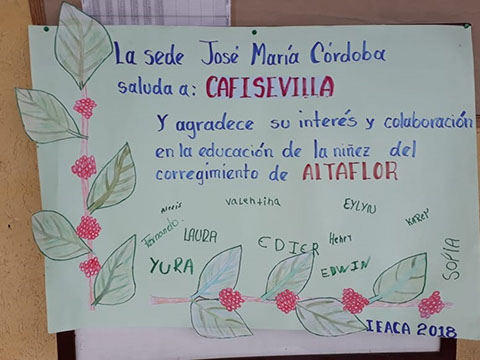 La sede José María Córdoba
saluda a: CAFISEVILLA
Y agradece su interés y colaboración
en la educación de la niñez del
corregimiento de ALTAFLOR
Neris
Valentina
EYLYN
KAREN
Fernando.
LAURA
EDIER
Henry
SOFIA
YURA
EDWIN
IEACA 2018